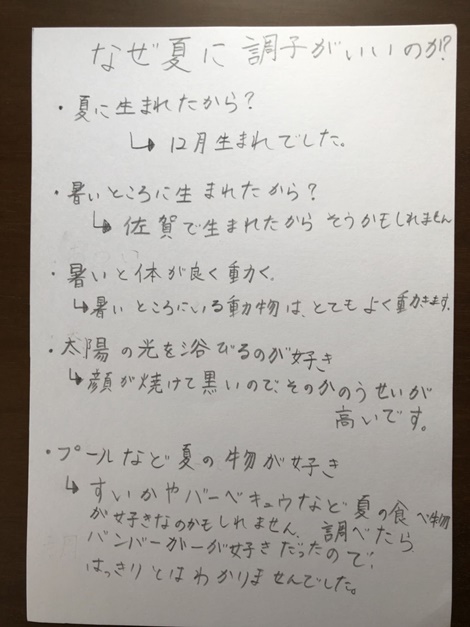 なぜ夏に調子がいいのか?
・夏に生まれたから?
↳12月生まれでした。
・暑いところに生まれたから?
↳佐賀で生まれたからそうかもしれません
・暑いと体が良く動く。
↳暑いところにいる動物は、とてもよく動きます。
・太陽の光を浴びるのが好き
↳顔が焼けて黒いので、そのかのうせいが
高いです。
・プールなど夏の物が好き
↳すいかやバーベキュウなど夏の食べ物
が好きなのかもしれません。調べたら
バンバーガーが好きだったので、
はっきりとはわかりませんでした。